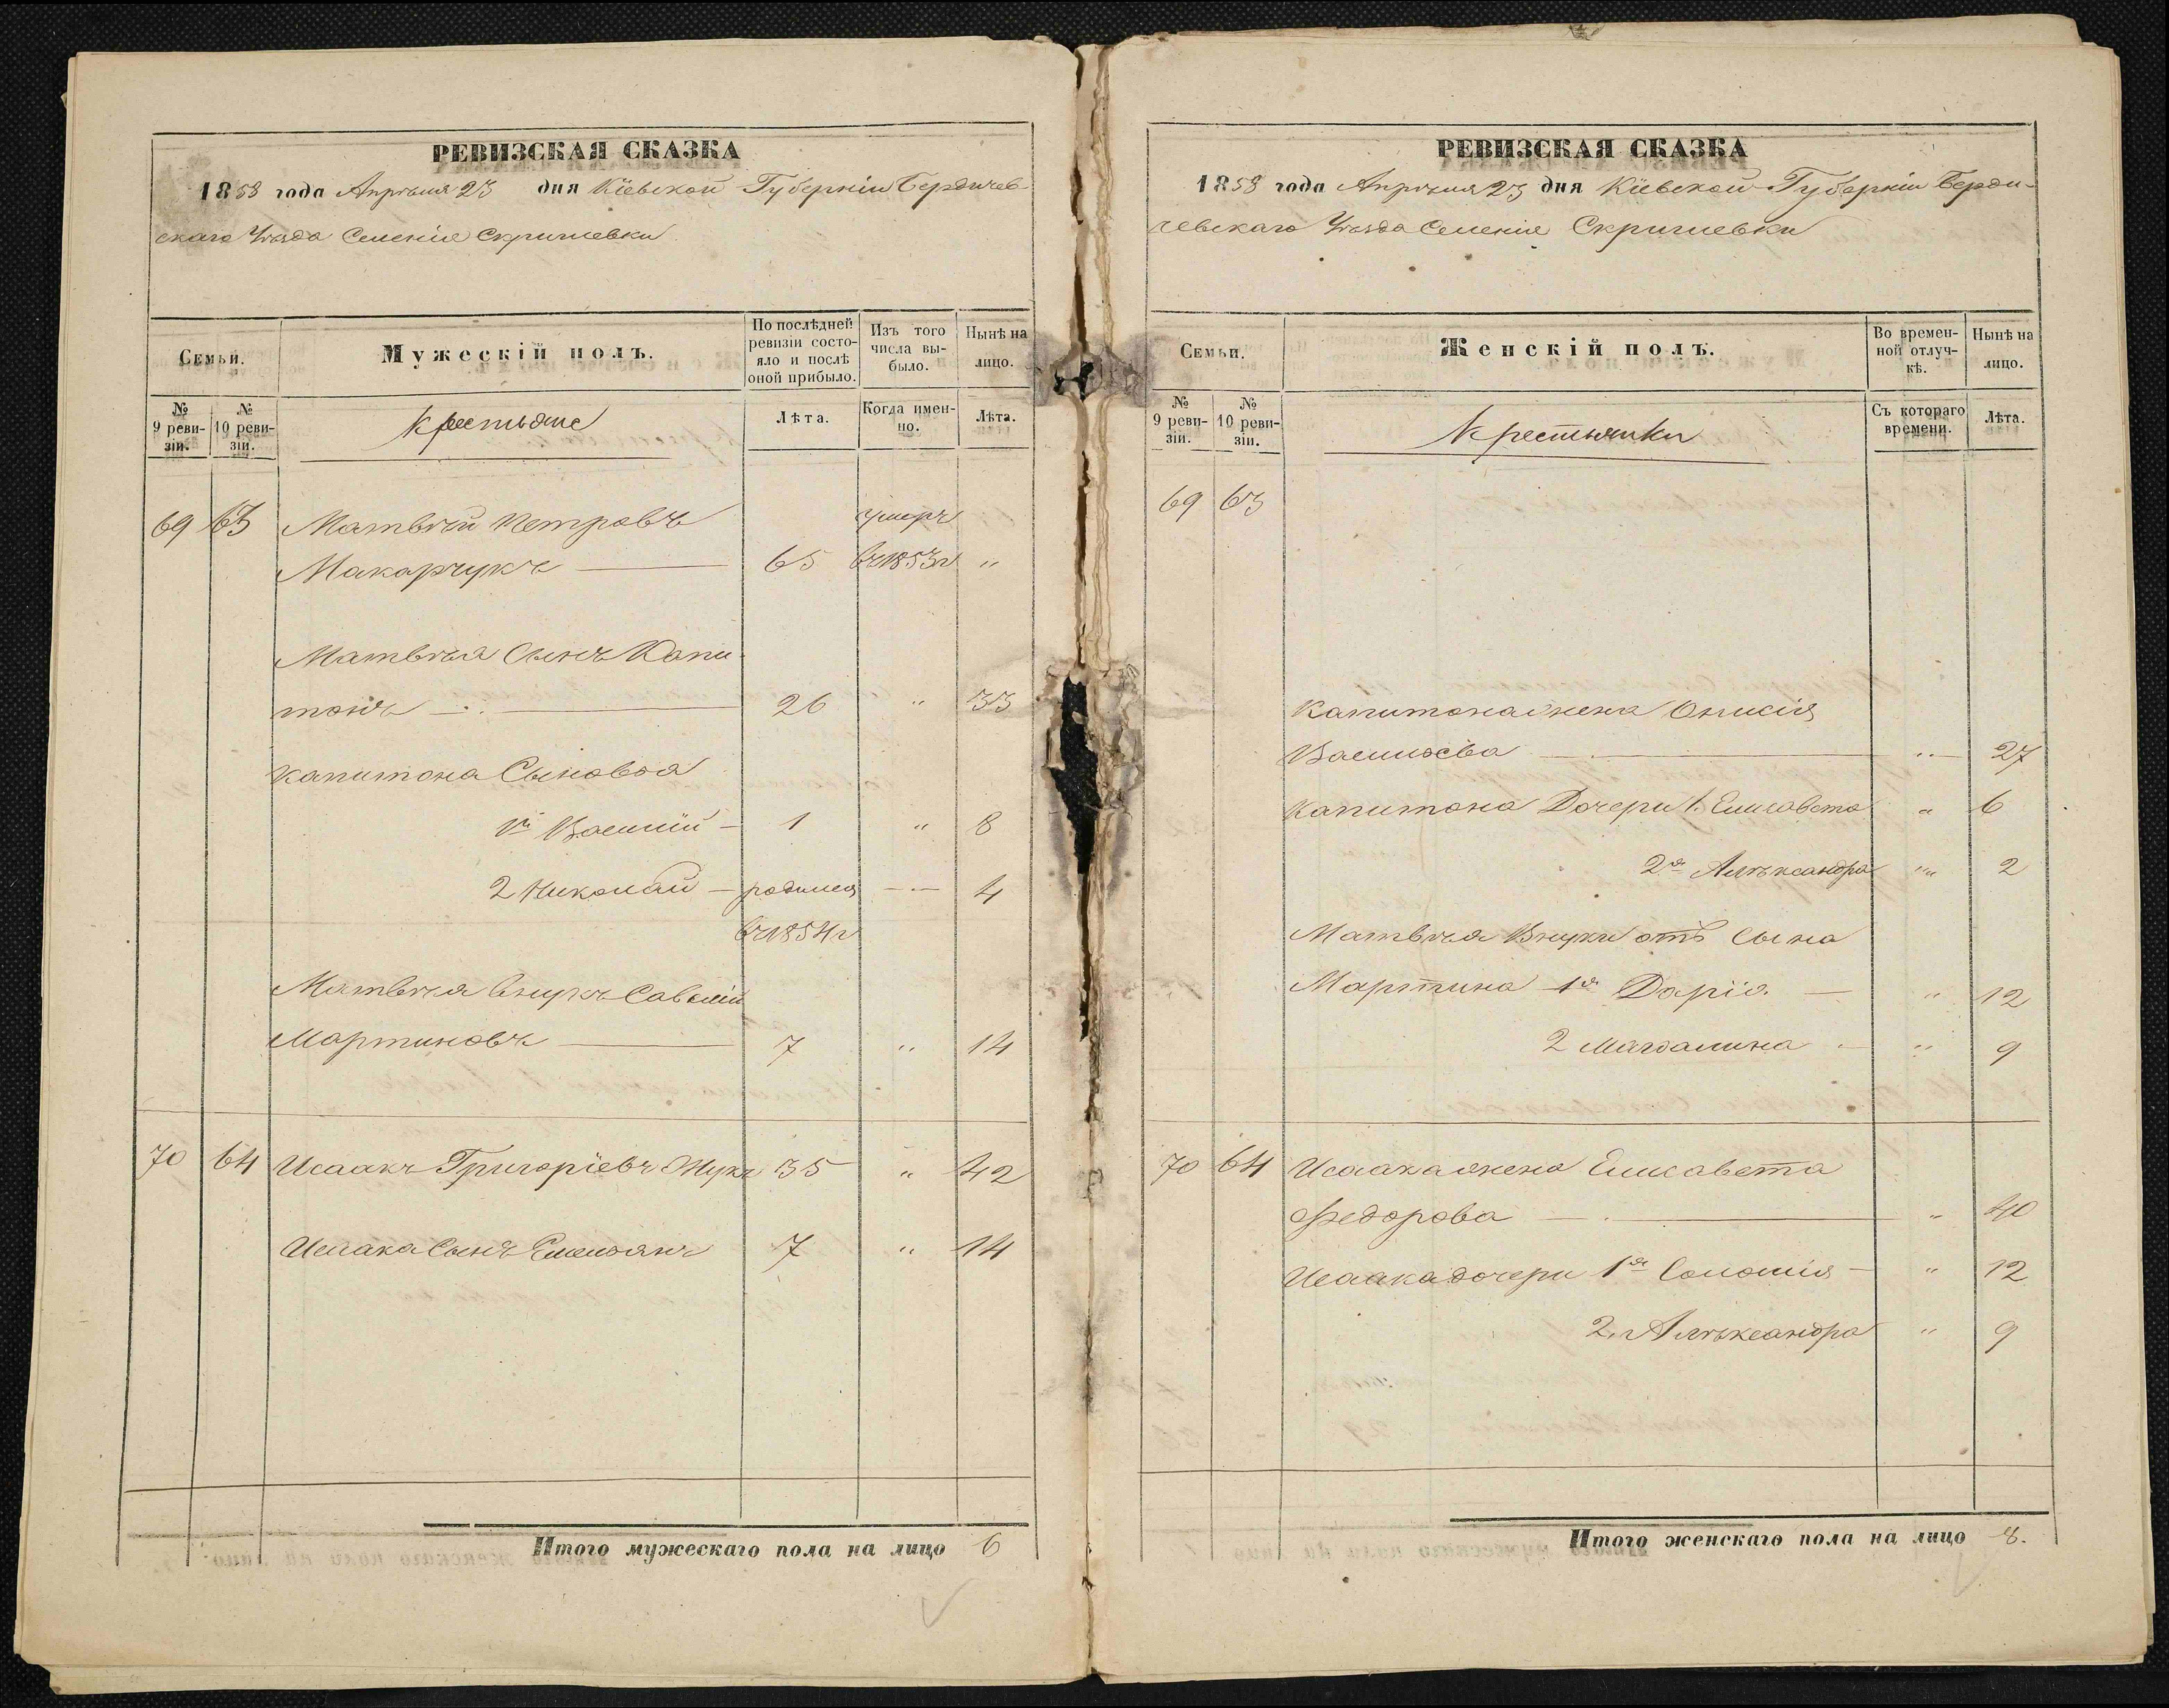 РЕВИЗСКАЯ СКАЗКА
1858 года Апрѣля 23 дня Кіевской Губерніи Бердичев-
скаго Уѣзда Селенія Скригилевки
Семьи.
Мужескій полъ.
По послѣдней ревизіи состояло и послѣ оной прибыло.
Изъ того числа выбыло.
Нынѣ на лицо.
№ 9 ревизіи.
№ 10 ревизіи.
Крестьяне
Лѣта.
Когда именно.
Лѣта.
69 63 Матвѣй Петровъ умеръ
Макарчукъ — 65 въ 1853 г „
Матвѣя Сынъ Капи-
тонъ — 26 „ 33
Капитона Сыновья
1й Василій — 1 „ 8
2 Николай — родился — 4
въ 1854 г
Матвѣя внукъ Савелій
Мартиновъ — 7 „ 14
70 64 Исаакъ Григоріевъ Жукъ 35 „ 42
Исаака Сынъ Емельянъ 7 „ 14
Итого мужескаго пола на лицо 6
РЕВИЗСКАЯ СКАЗКА
1858 года Апрѣля 23 дня Кіевской Губерніи Берди-
чевскаго Уѣзда Селенія Скригилевки
Семьи.
Женскій полъ.
Во временной отлучкѣ.
Нынѣ на лицо.
№ 9 ревизіи.
№ 10 ревизіи.
Крестьянки
Съ котораго времени.
Лѣта.
69 63
Капитона жена Онисія
Васильева — „ — 27
Капитона Дочери 1. Елисавета „ 6
2я Алѣксандра „ 2
Матвѣя Внуки отъ Сына
Мартина 1я Дарія — „ 12
2 Магдалина — „ 9
70 64 Исаака жена Елисавета
Федорова — „ 40
Исаака дочери 1я Соломія — „ 12
2. Алѣксандра „ 9
Итого женскаго пола на лицо 8.